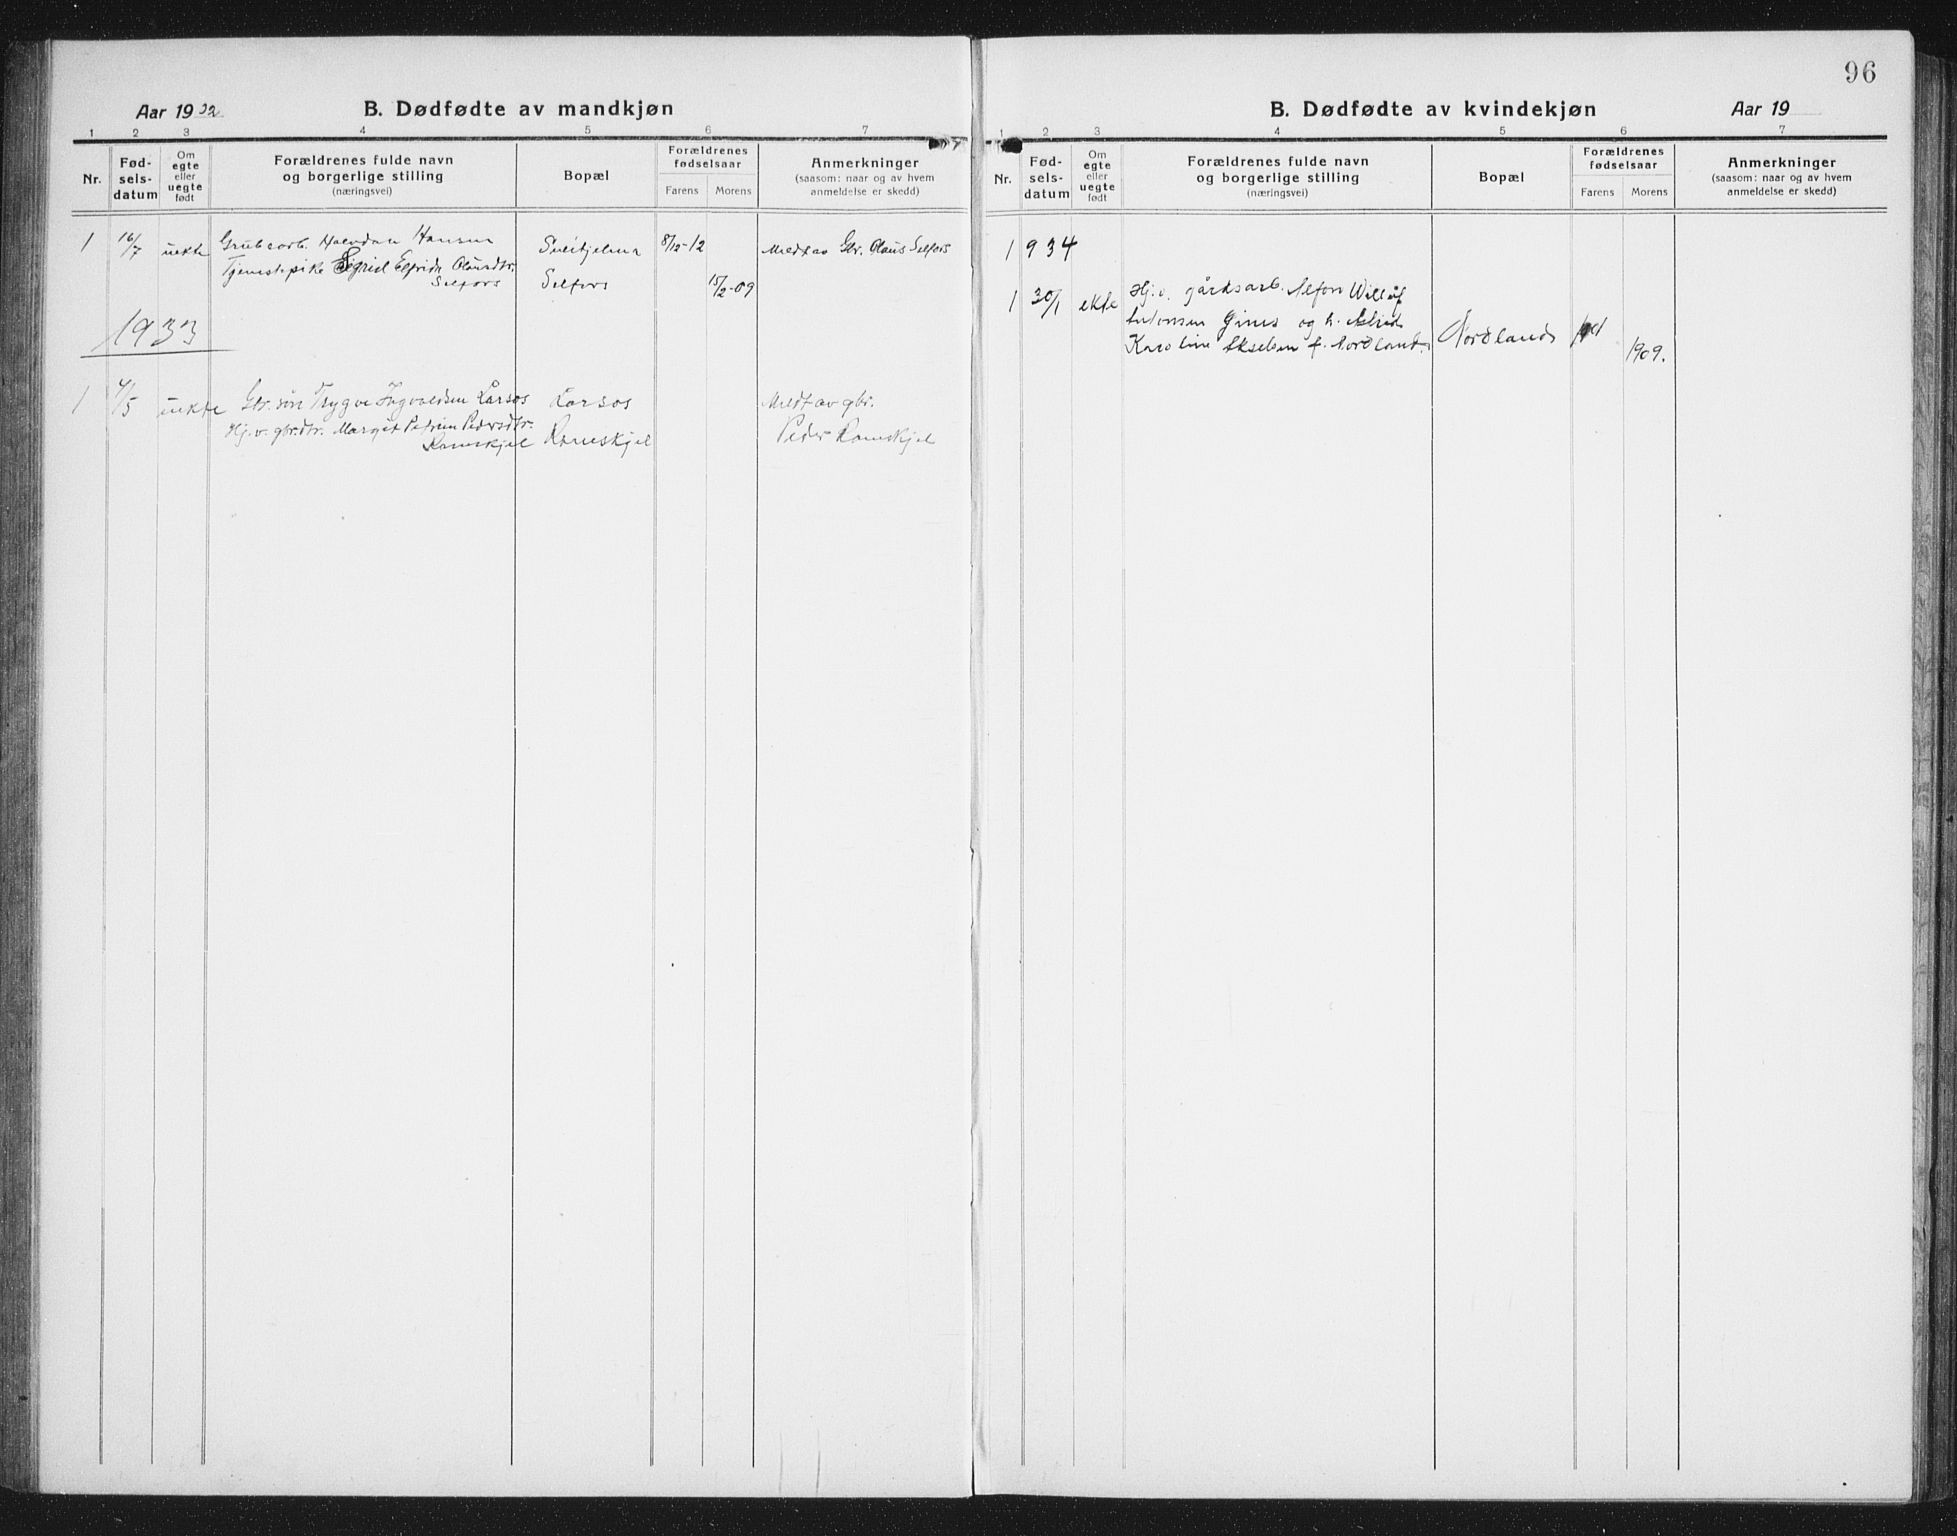 Aar 1932 B. Dødfødte av mandkjøn
1 2 3 4 5 6 7
Nr.
Fød-
sels-
datum
Om
egte
eller
uegte
født
Forældrenes fulde navn
og borgerlige stilling
(næringsvei)
Bopæl
Forældrenes
fødselsaar
Farens Morens
Anmerkninger
(saasom: naar og av hvem
anmeldelse er skedd)
1 16/7 uekte Grubearb. Halvdan Hansen Sulitjelma 8/12-12 Meldt av Gbr. Olaus Selfors
Tjenestepike Sigrid Elfride Olausdtr. Selfors 15/2-09
Selfors
1933
1 4/5 uekte Gbr. søn Trygve Ingvaldsen Larsos Larsos Meldt av gbr.
Hj.v. gbr.dtr. Margit Petrine Pedersdtr. Rameskjel Peder Rameskjel
Rameskjel
96
B. Dødfødte av kvindekjøn Aar 19
1 2 3 4 5 6 7
Nr.
Fød-
sels-
datum
Om
egte
eller
uegte
født
Forældrenes fulde navn
og borgerlige stilling
(næringsvei)
Bopæl
Forældrenes
fødselsaar
Farens Morens
Anmerkninger
(saasom: naar og av hvem
anmeldelse er skedd)
1934
1 30/1 ekte Hj.v. gårdsarb. Alfon
Antonsen og h.
Karoline Akselsen f. Nordland. Nordland
1909.